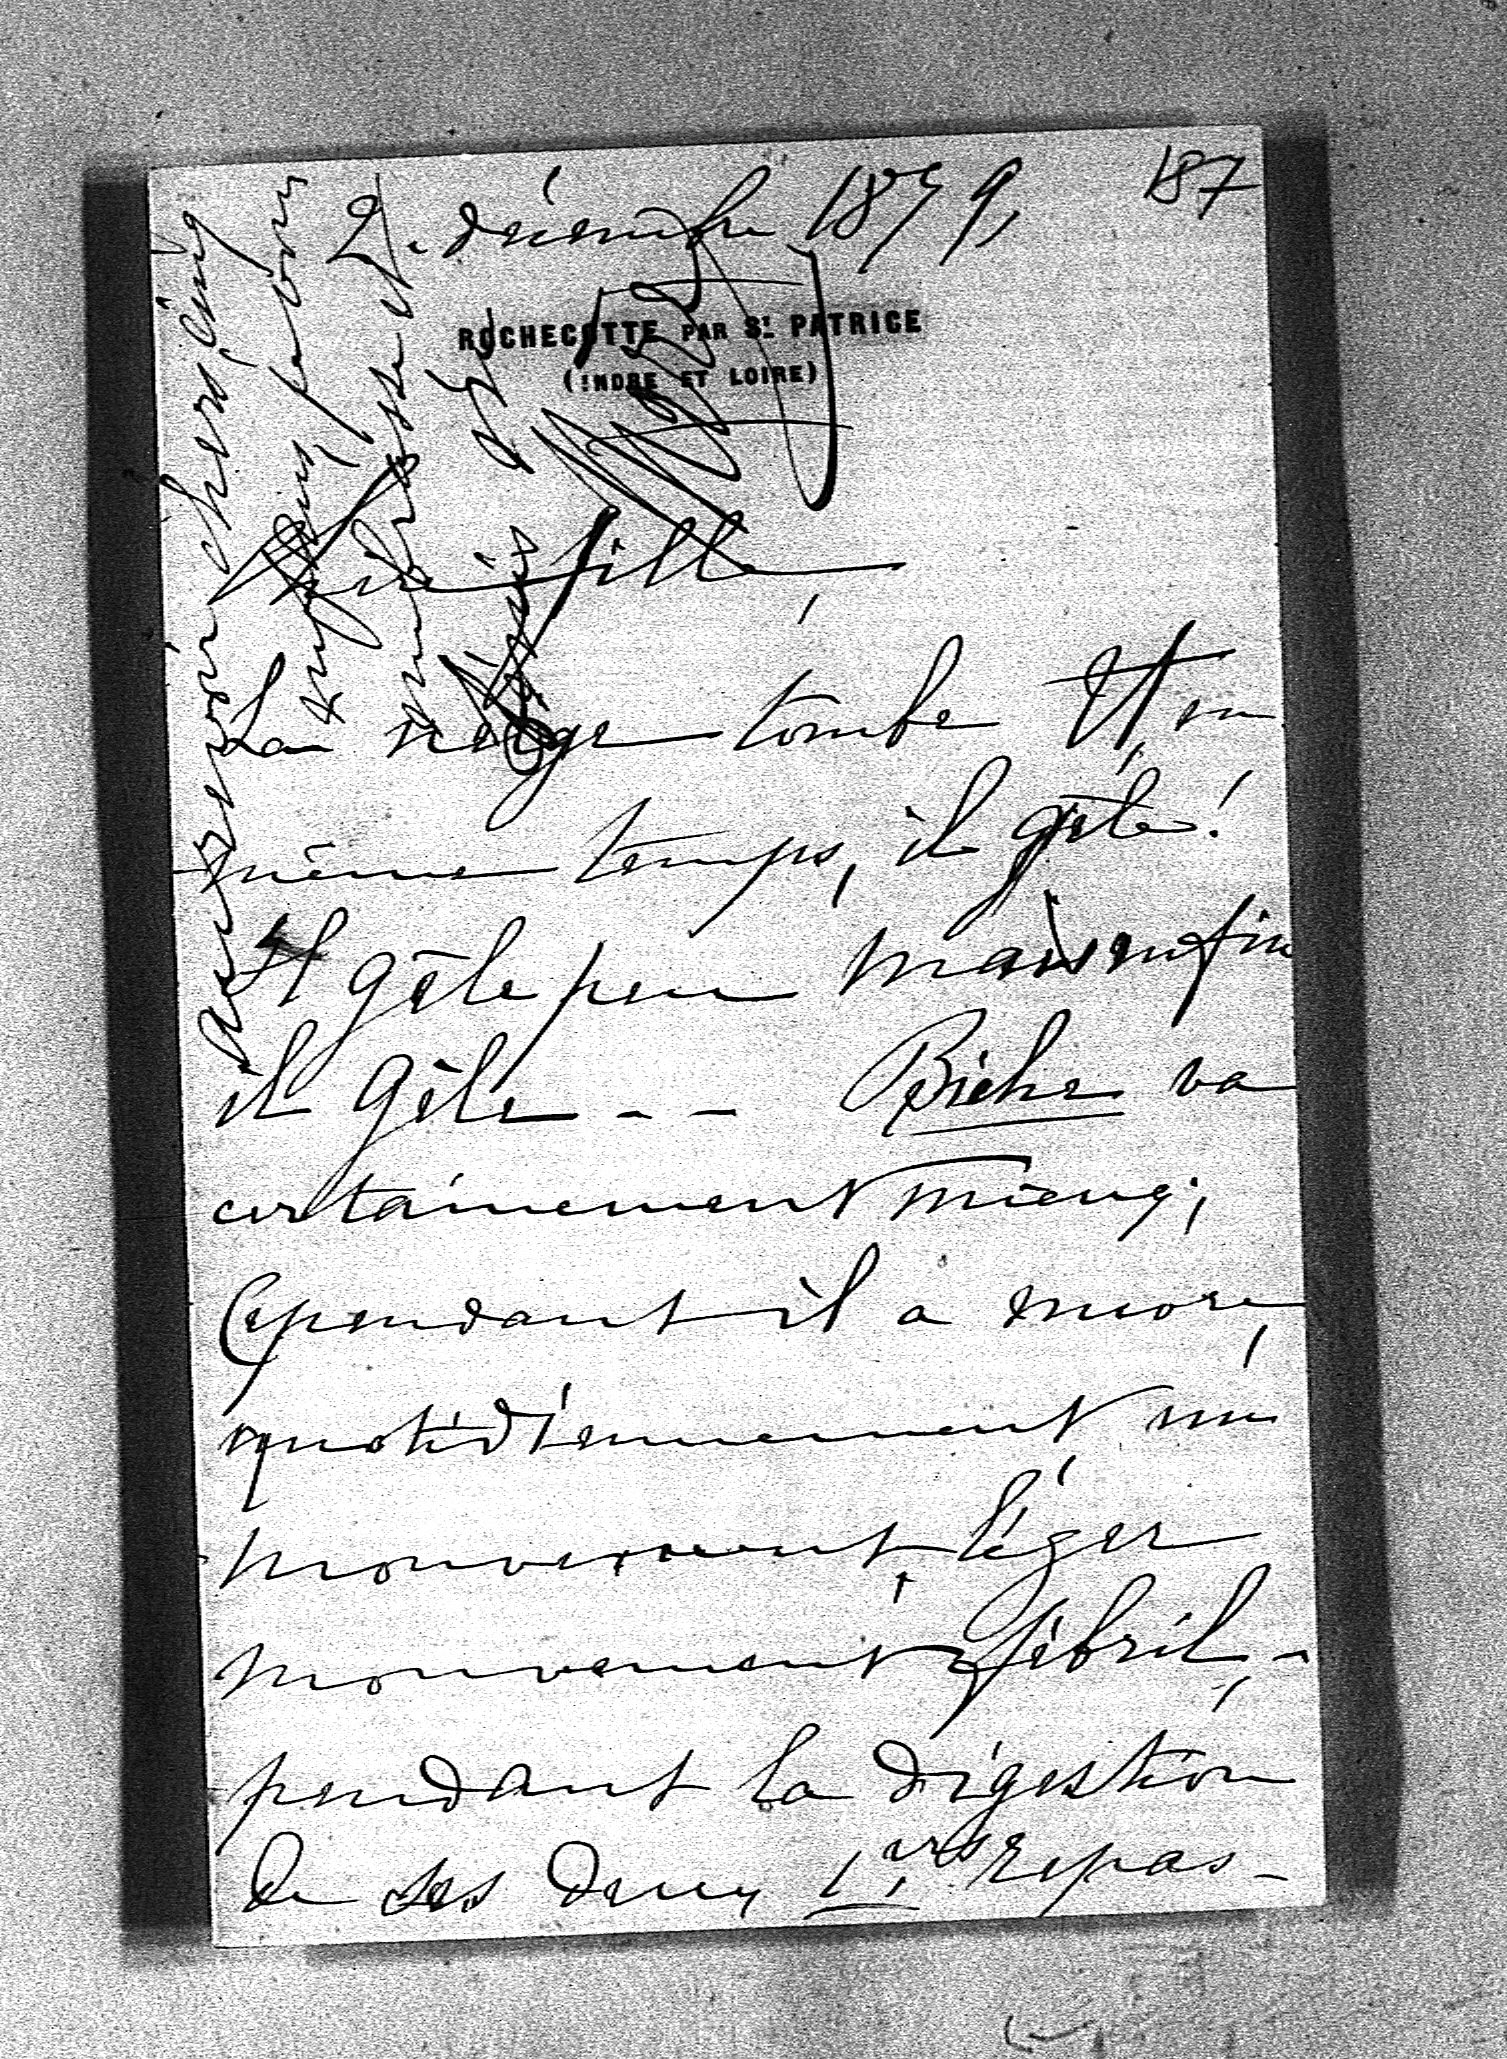 187
2 décembre 1879,
ROCHECOTTE PAR St. PATRICE
(INDRE ET LOIRE)
fille
La neige tombe et, en
même temps, il gèle!
Il gèle peu mais enfin
il gèle - - Biche va
certainement mieux;
Cependant il a encore,
quotidiennement un
mouvement léger
mouvement fébril, -
pendant la digestion
de ses deux 1ers repas -
Au revoir chers
embrasse et